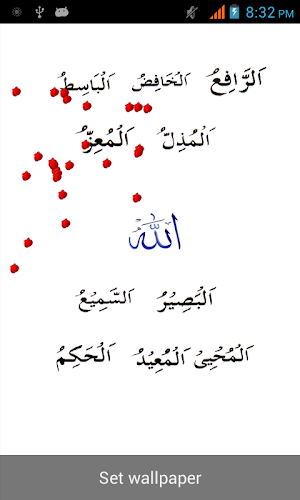 8:32 PM
اَلرَّافِعُ اَلْخَافِضُ اَلْبَاسِطُ
اَلْمُذِلُّ اَلْمُعِزُّ
اللّٰه
اَلْبَصِيْرُ اَلسَّمِيْعُ
اَلْمُحْيِيْ اَلْمُعِيْدُ اَلْحَكِمُ
Set wallpaper